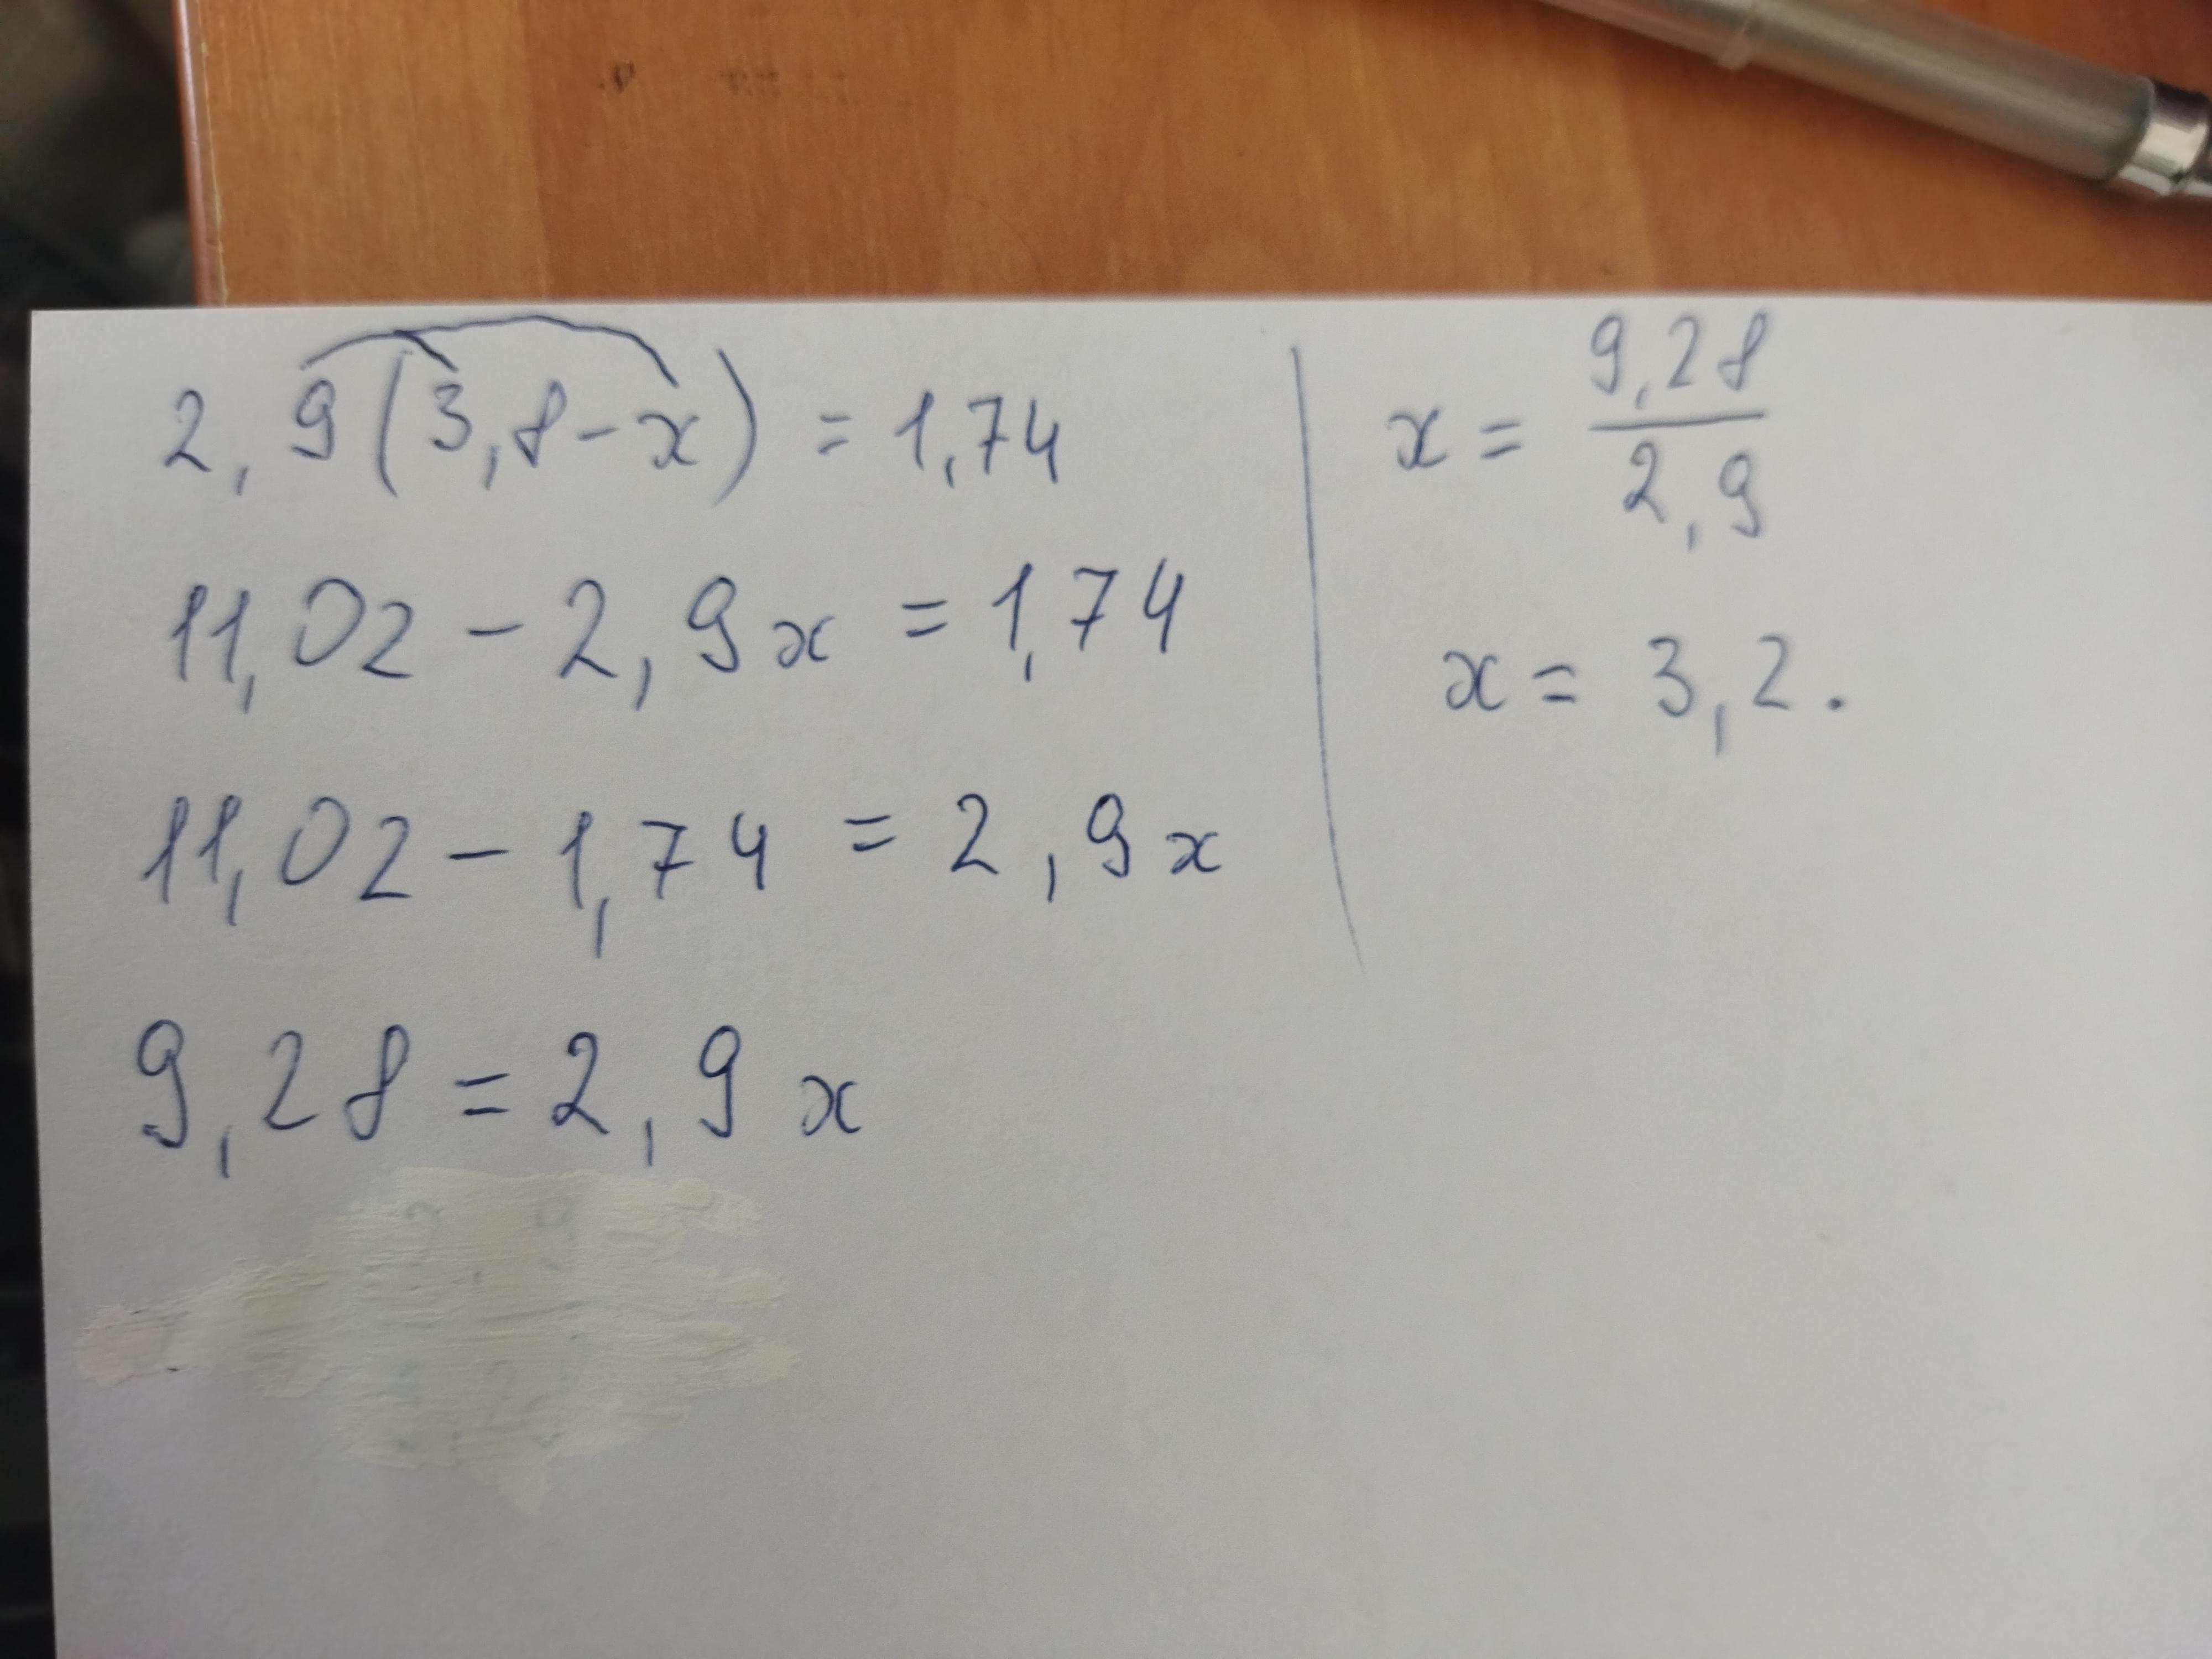 2,9(3,8-x) = 1,74
11,02 - 2,9x = 1,74
11,02 - 1,74 = 2,9x
9,28 = 2,9x
x = 9,28/2,9
x = 3,2.